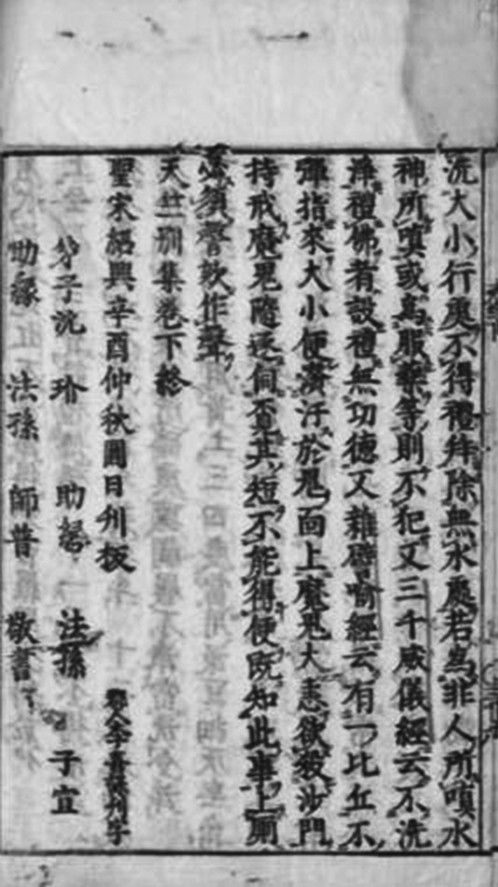 洗大小行處不得禮拜除無水處若為非人所嗔水
神所嗔或為服藥等則不犯又三千威儀經云不洗
淨禮佛者設禮無功德又雜譬喻經云有一比丘不
彈指來大小便濆汙於鬼面上魔鬼大恚欲殺沙門
持戒魔鬼隨逐伺覓其短不能得便既知此事上厠
必須謦欬作聲
天竺別集卷下終
聖宋紹興辛酉仲秋圓日刋板
弟子沈玲 助 法孫 子宜
助緣 法孫 師普 敬書